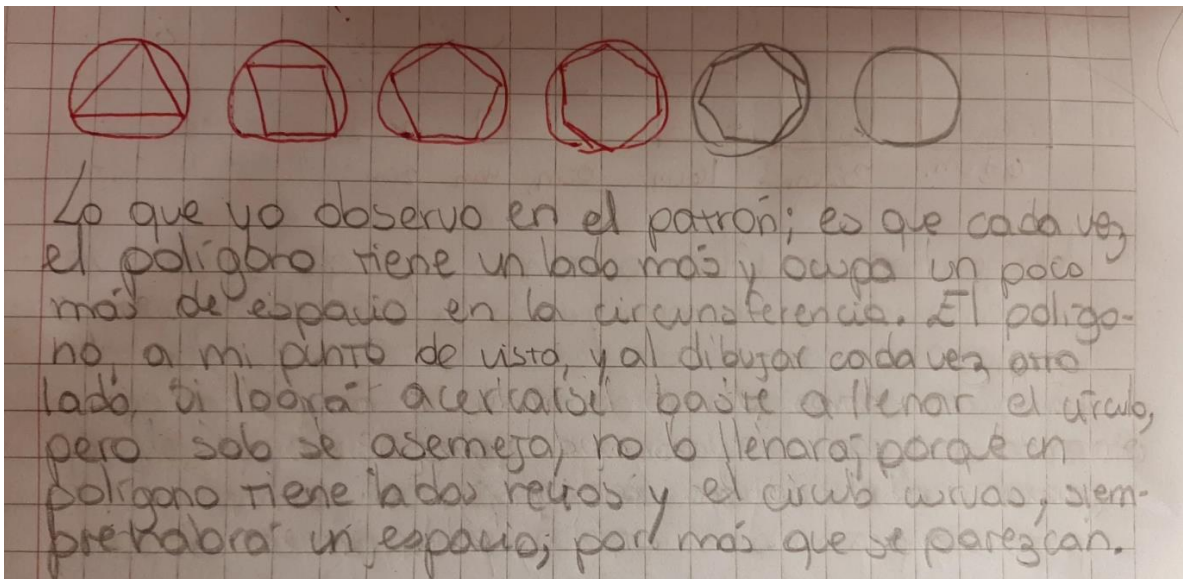 Lo que yo observo en el patrón; es que cada vez
el polígono tiene un lado más y ocupa un poco
más de espacio en la circunsferencia. El polígo-
no a mi punto de vista, y al dibujar cada vez otro
lado, si logra acercarse baste a llenar el círculo,
pero solo se asemeja, no lo llenara; porque un
polígono tiene lados rectos y el circulo curvas, siem-
pre habra un espacio; por más que se parezcan.